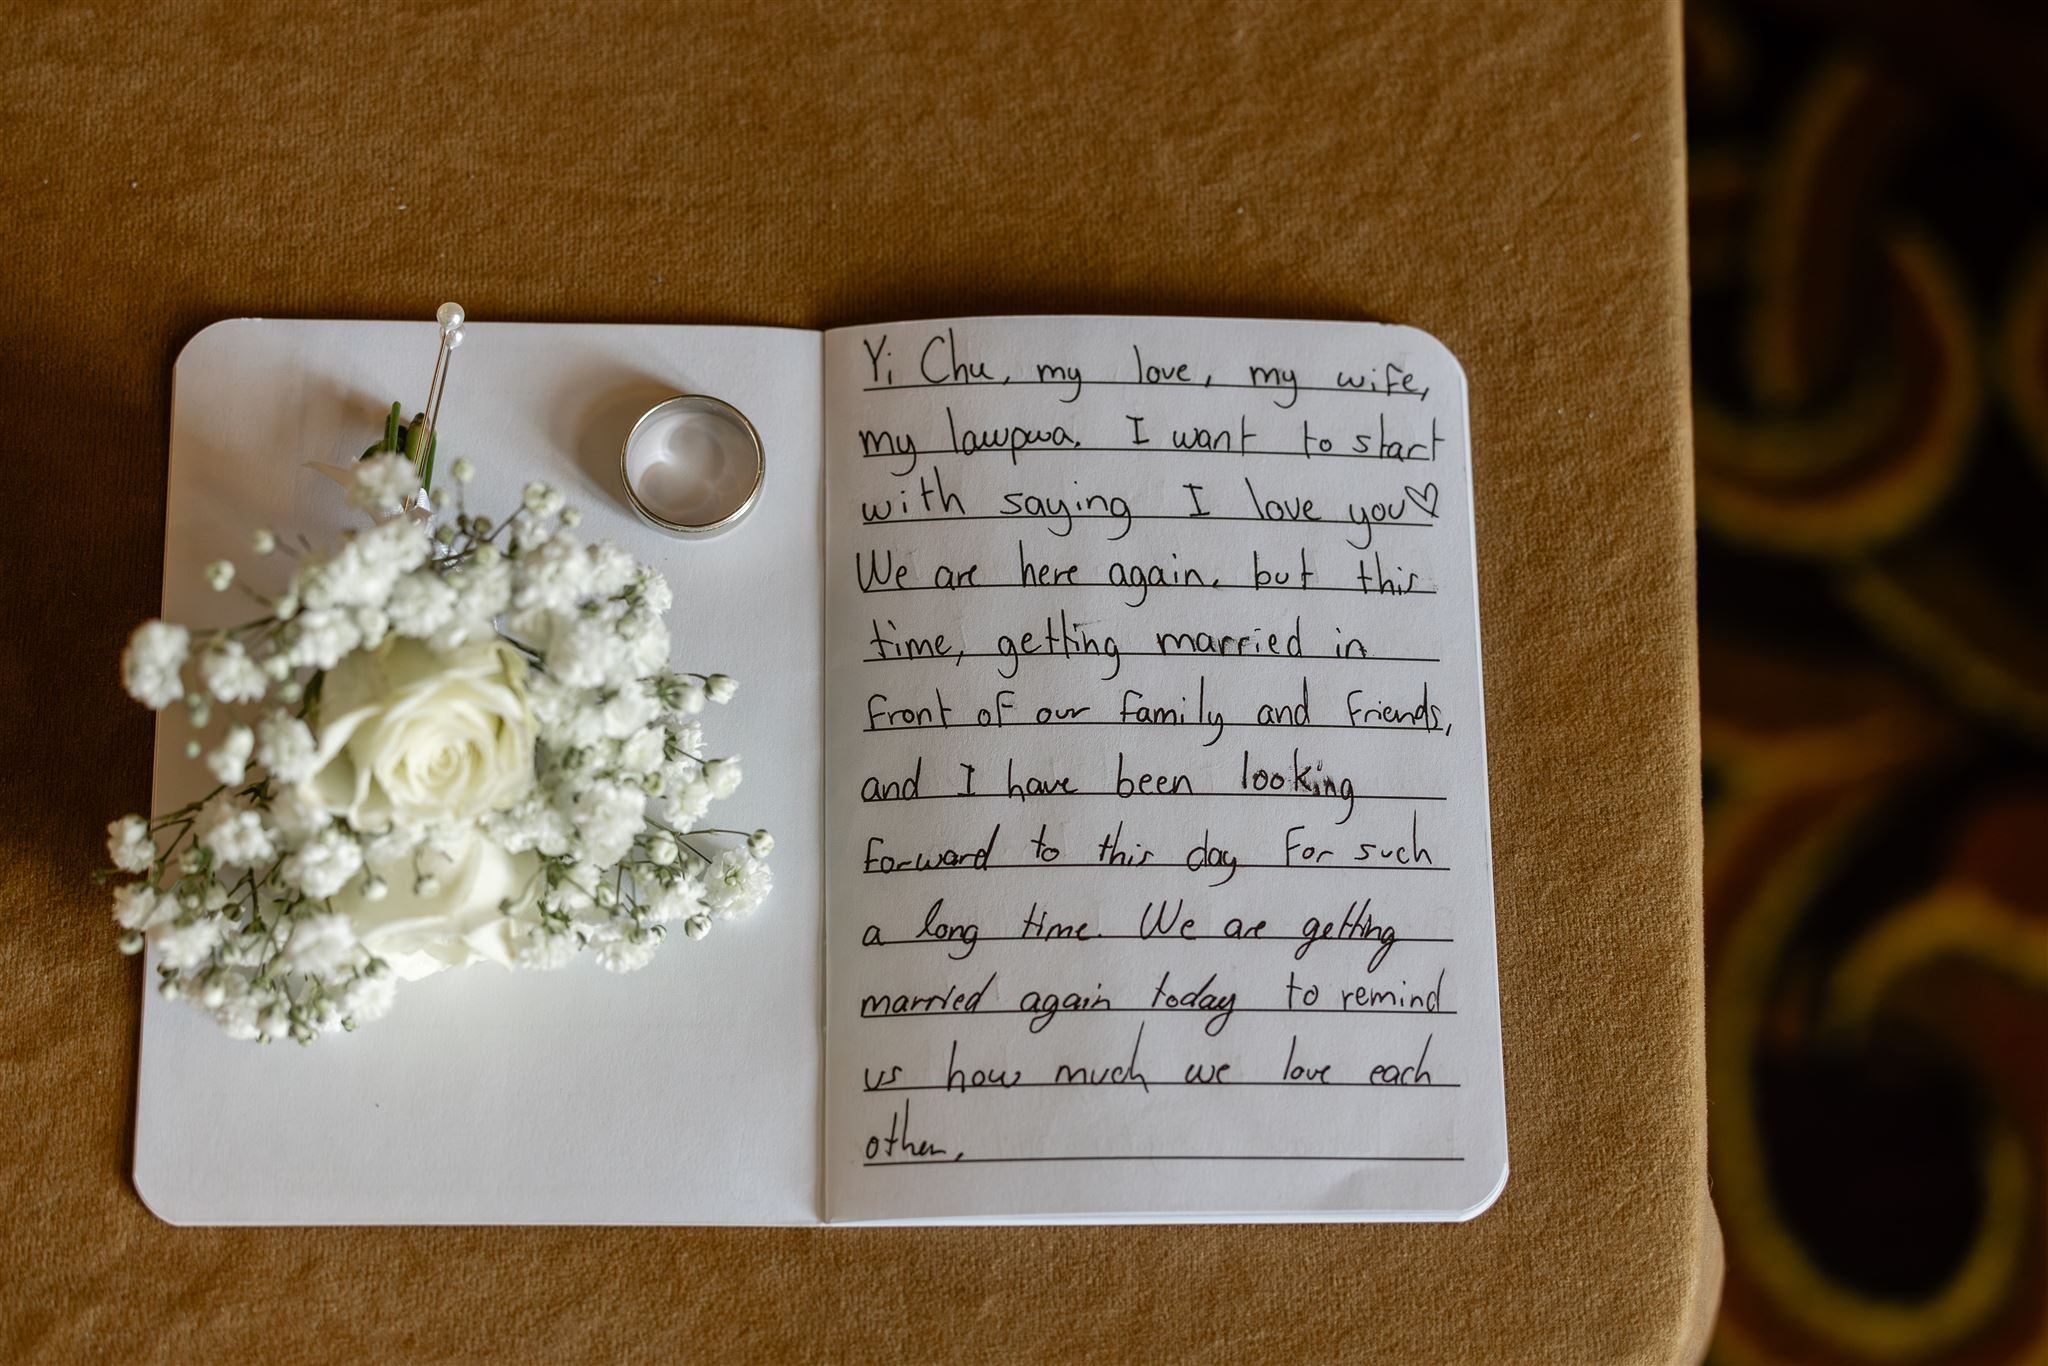 Yi Chu, my love, my wife,
my lawpwa. I want to start
with saying I love you♡
We are here again, but this
time, getting married in
front of our family and friends,
and I have been looking
forward to this day for such
a long time. We are getting
married again today to remind
us how much we love each
other,